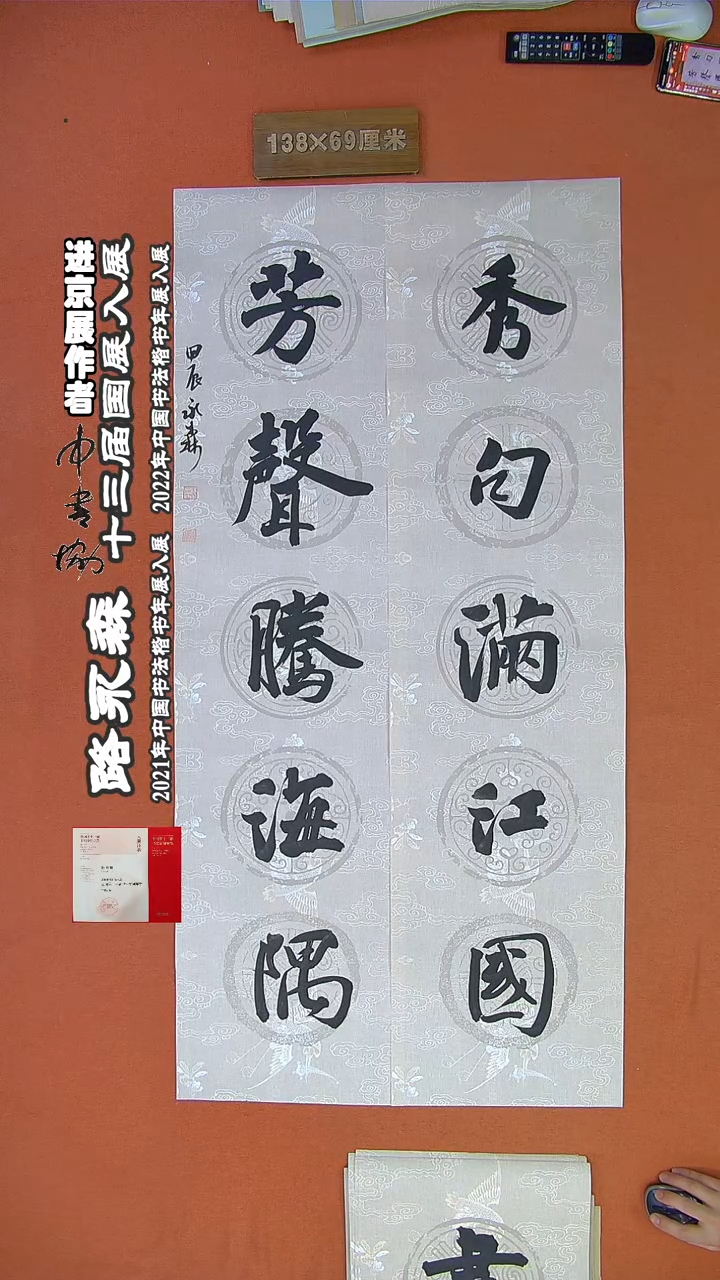 138×69厘米
秀句滿江國
芳聲騰海隅
甲辰永森
进河展作者
中书协
路永森
十三届国展入展
2021年中国书法楷书年展入展
2022年中国书法楷书年展入展